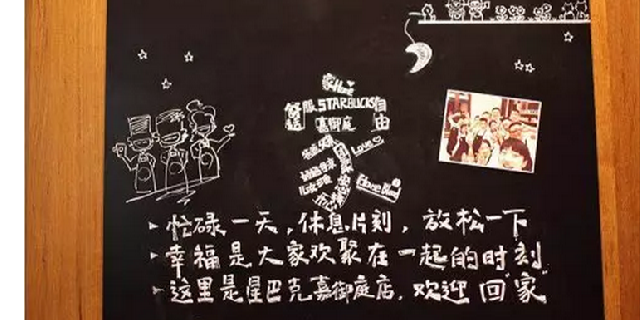 家
舒服 STARBUCKS 自由
嘉御庭
Love
忙碌一天，休息片刻，放松一下
幸福是大家欢聚在一起的时刻
这里是星巴克嘉御庭店，欢迎回"家"